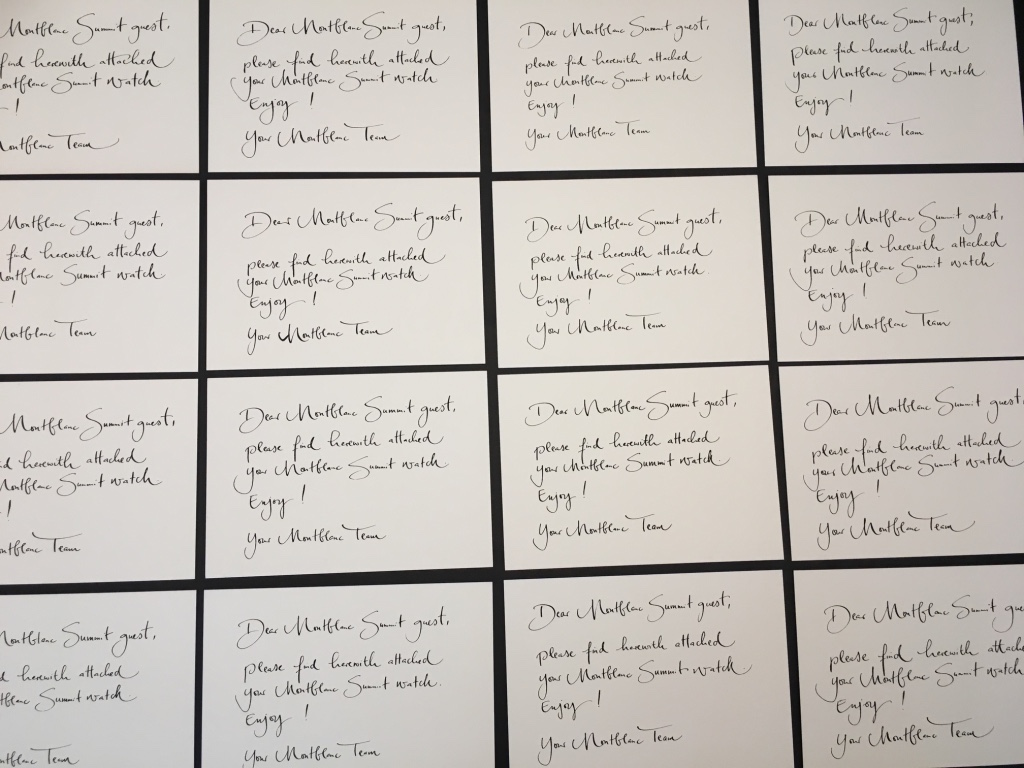 Montblanc Summit guest,
find herewith attached
Summit watch
!
Team
Dear Montblanc Summit guest,
please find herewith attached
your Montblanc Summit watch
Enjoy !
Your Montblanc Team
Dear Montblanc Summit guest,
please find herewith attached
your Montblanc Summit watch
Enjoy !
Your Montblanc Team
Dear Montblanc Summit guest,
please find herewith attached
your Montblanc Summit watch
Enjoy !
Your Montblanc Team
Montblanc Summit guest,
find herewith attached
Summit watch
!
Montblanc Team
Dear Montblanc Summit guest,
please find herewith attached
your Montblanc Summit watch
Enjoy !
Your Montblanc Team
Dear Montblanc Summit guest,
please find herewith attached
your Montblanc Summit watch.
Enjoy !
Your Montblanc Team
Dear Montblanc Summit guest,
please find herewith attached
your Montblanc Summit watch
Enjoy !
Your Montblanc Team
Montblanc Summit guest,
herewith attached
Summit watch
!
Team
Dear Montblanc Summit guest,
please find herewith attached
your Montblanc Summit watch
Enjoy !
Your Montblanc Team
Dear Montblanc Summit guest,
please find herewith attached
your Montblanc Summit watch
Enjoy !
Your Montblanc Team
Dear Montblanc Summit guest
please find herewith attached
your Montblanc Summit watch.
Enjoy !
Your Montblanc Team
Montblanc Summit guest,
herewith attached
Summit watch
Team
Dear Montblanc Summit guest,
please find herewith attached
your Montblanc Summit watch.
Enjoy !
Your Montblanc Team
Dear Montblanc Summit guest,
please find herewith attached
your Montblanc Summit watch
Enjoy !
Your Montblanc Team
Dear Montblanc Summit
please find herewith
your Montblanc Summit watch
Enjoy !
Your Montblanc Team